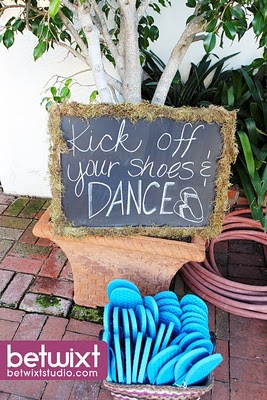 Kick off
your shoes &
DANCE
betwixt
betwixtstudio.com